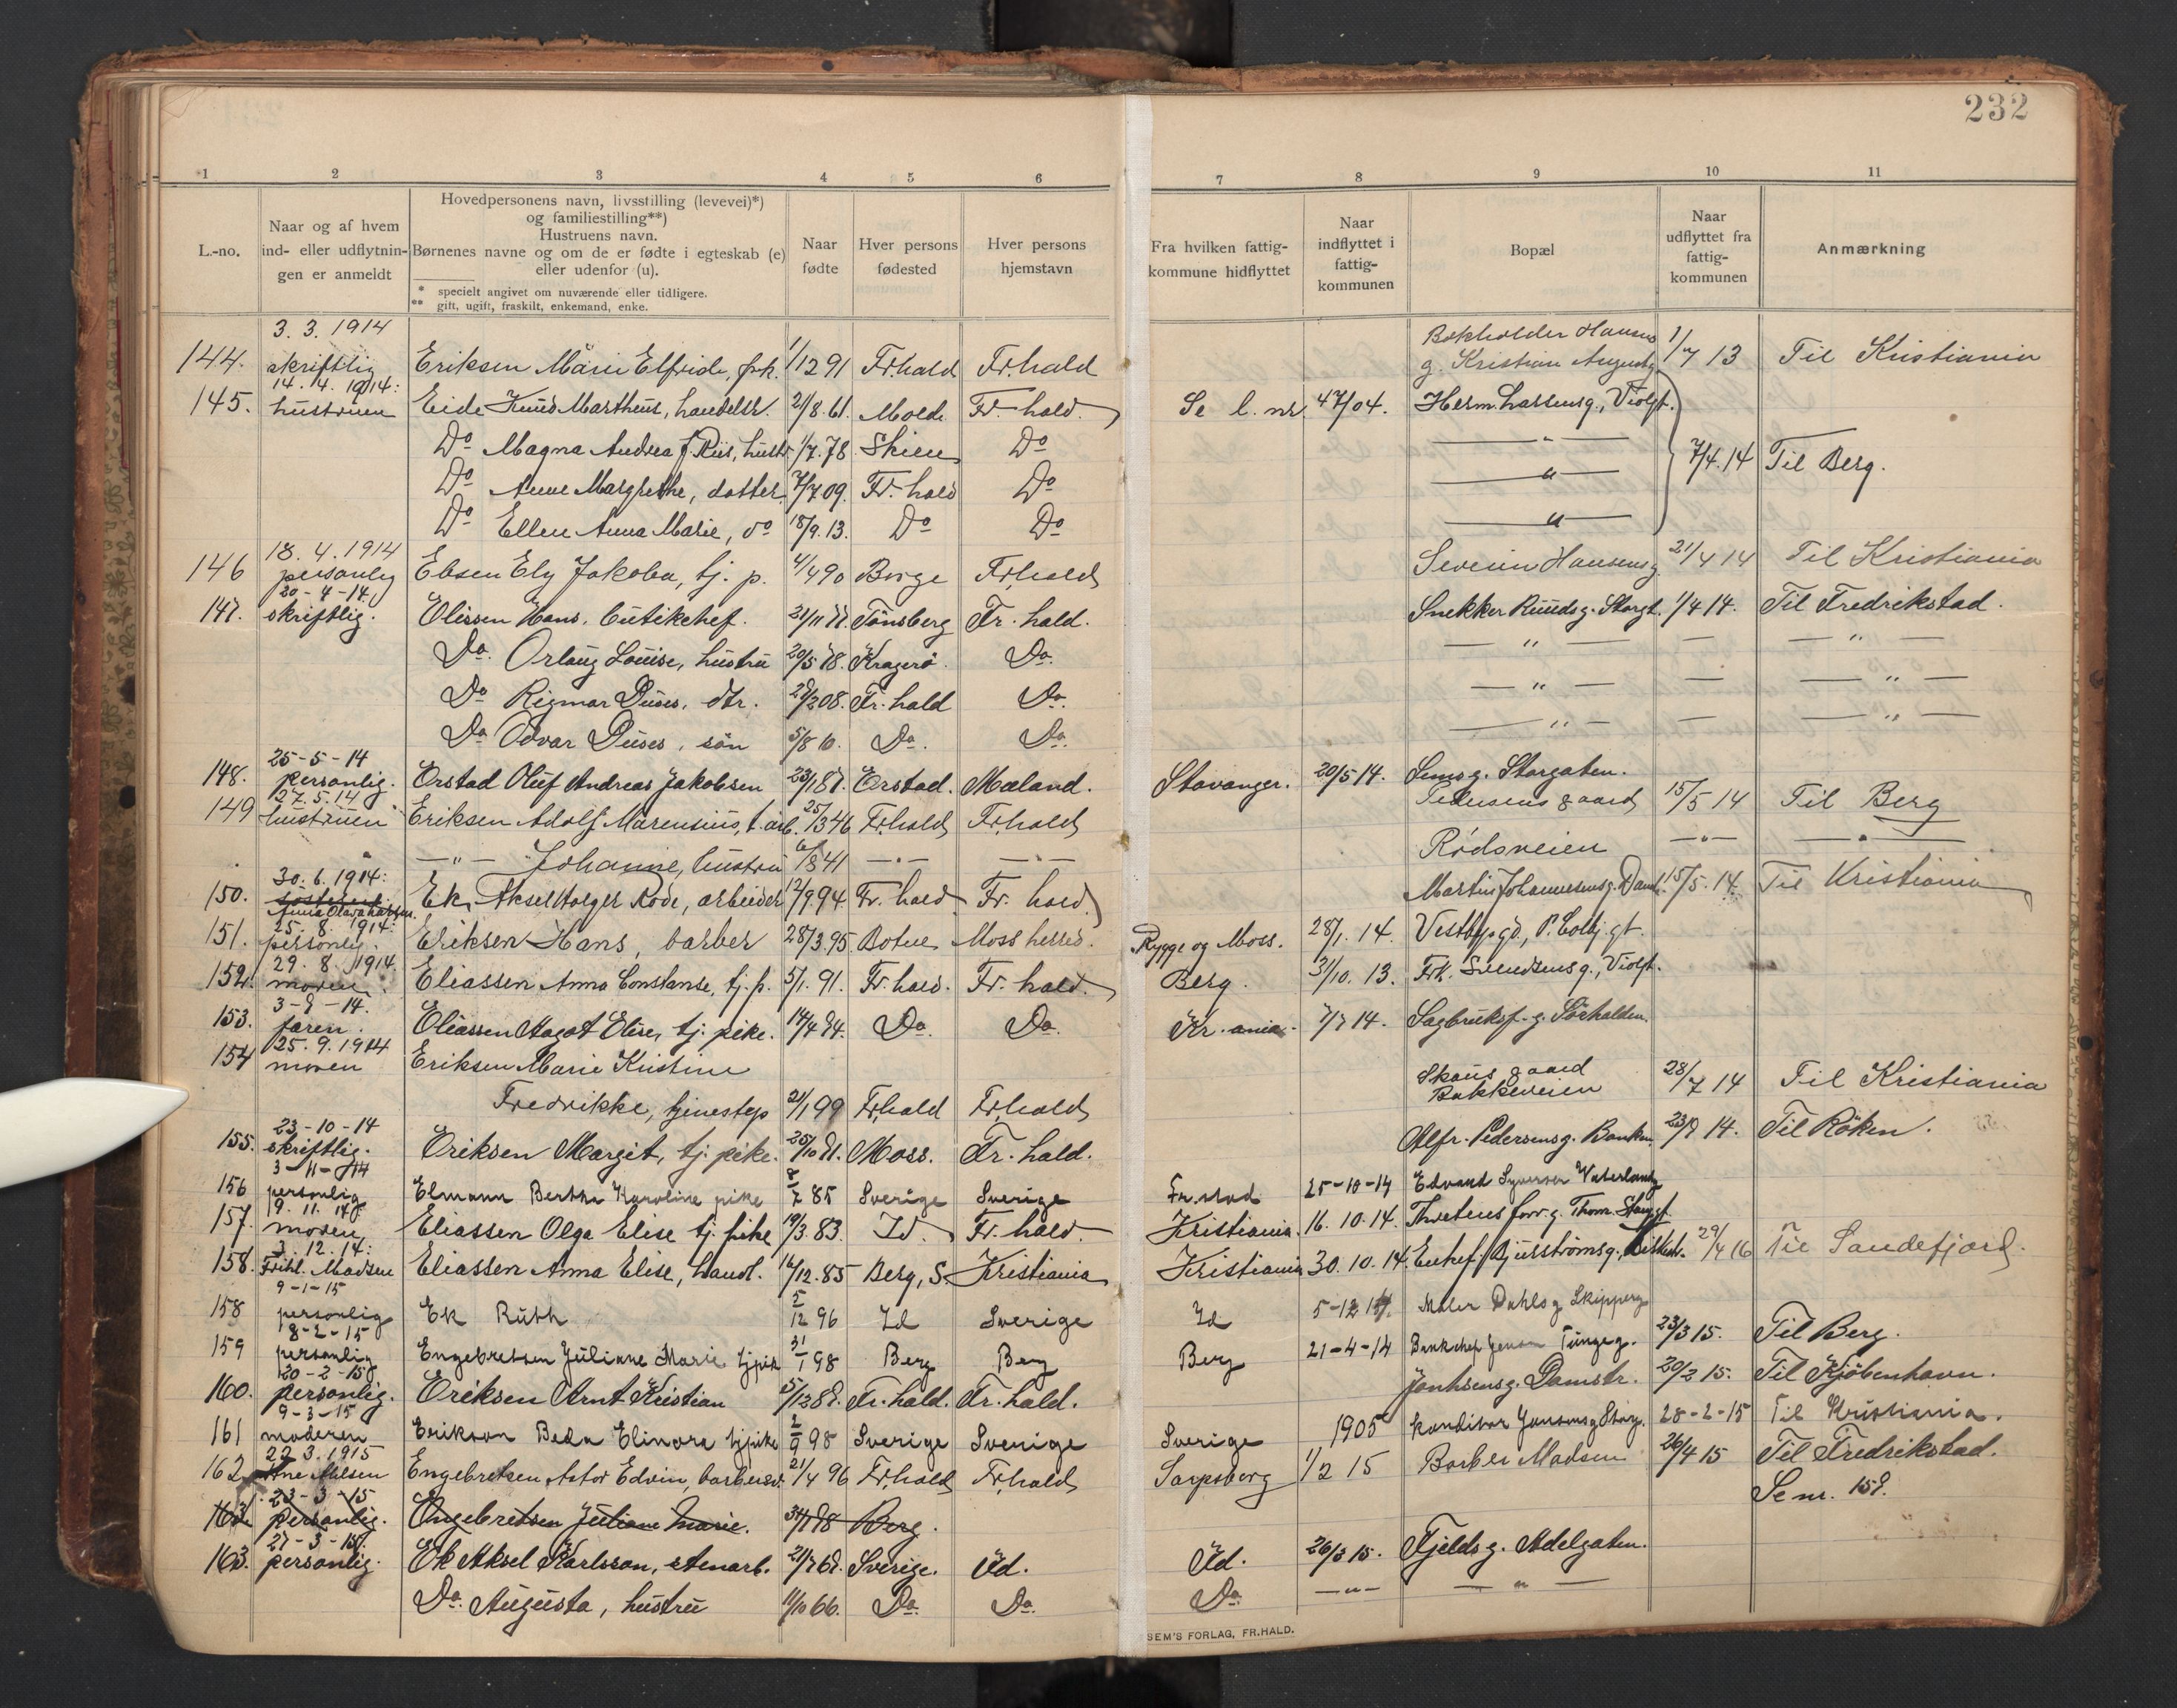 232
1 2 3 4 5 6 7 8 9 10 11
L.-no.
Naar og af hvem
ind- eller udflytnin-
gen er anmeldt
Hovedpersonens navn, livsstilling (levevei)*)
og familiestilling**)
Hustruens navn.
Børnenes navne og om de er fødte i egteskab (e)
eller udenfor (u).
* specielt angivet om nuværende eller tidligere.
** gift, ugift, fraskilt, enkemand, enke.
Naar
fødte
Hver persons
fødested
Hver persons
hjemstavn
Fra hvilken fattig-
kommune hidflyttet
Naar
indflyttet i
fattig-
kommunen
Bopæl
Naar
udflyttet fra
fattig-
kommunen
Anmærkning
3. 3. 1914 Bokholder Hansens
144. skriftlig Eriksen Marie Elfride, frk. 1/12 91 Fr.hald Fr.hald g. Kristian Augustg. 1/7 13 Til Kristiania
14. 4. 1914:
145. hustruen Eide Knud Martheus, handelsr. 21/8. 61. Molde Fr. hald. Se l. nr. 47/04. Herm. Larsensg., Violgt.
Do Magna Andrea f. Riis, hustr. 1/7. 78. Skien Do — " — 7/4. 14 Til Berg.
Do Anne Margrethe, datter 7/7 09. Fr. hald Do — " —
Do Ellen Anna Marie, do 18/9. 13. Do Do — " —
18. 4. 1914
146 personlig Ebsen Ely Jakoba, tj. p. 4/4 90 Borge Fr.hald Severin Hanseng. 21/4 14 Til Kristiania
20-4-14.
147. skriftlig. Elissen Hans, butikchef. 21/11 78. Tönsberg Fr. hald. Snekker Ruudsg. Storgt. 1/4 14. Til Fredrikstad.
Do. Orlaug Louise, hustru 20/5 78. Kragerö. Do. — " — — — " —
Do Rigmar Duses, dtr. 28/2 08. Fr. hald Do. — " — — — " —
Do Odvar Duses, sön 5/8 10. Do. Do. — " — — — " —
25-5-14
148. personlig. Erstad Oluf Andreas Jakobsen 23/1 87. Erstad. Mæland. Stavanger. 20/5 14. Semsg. Storgaten.
27. 5. 14 Pedersens gaard 15/5 14 Til Berg
149 hustruen Eriksen Adolf Marensius, t. arb. 25/3 46 Fr.hald Fr.hald
— " — Johanne, hustru 6/8 41 — " — — " — Rødsveien — " — — " —
30. 6. 1914:
150. Ek, Aksel Holger Rode, arbeider 12/9 94 Fr. hald Fr. hald Martin Johannesensg. Damst. 15/5. 14. Til Kristiania
Anna Olava Larsen.
25. 8. 1914:
151. personlig. Eriksen Hans, barber 28/3. 95 Botne Moss herred. Rygge og Moss. 28/1. 14. Vestbygd, P. Colbj. gt.
29. 8. 1914.
152. moren. Eliassen Anna Constanse, tj. p. 5/1. 91. Fr. hald. Fr. hald. Berg. 31/10. 13. Frk. Svendsensg., Violgt.
3-9-14.
153. faren. Eliassen Aagot Elise, tj. pike. 14/4 94. Do. Do. Kr.ania. 7/7 14. Sagbruksf. g. Sörhalden.
25. 9. 1914
154 moren Eriksen Marie Kristine Skaus gaard
Fredrikke, tjenestep 21/1 99 Fr.hald Fr.hald Bakkeveien 28/7 14 Til Kristiania
23-10-14
155. skriftlig. Eriksen Margit, tj. pike. 25/10 91. Moss. Fr. hald. Alfr. Pedersensg. Banken 23/9 14. Til Röken.
3-11-14
156 personlig Elmann Bertha Karoline pike 8/7 85 Sverige Sverige Fr.stad 25-10-14 Edvard Syversen Vaterlandg
9. 11. 14
157. moren, Eliassen Olga Elise tj. pike 19/3. 83. Id. Fr. hald. Kristiania. 16. 10. 14. Thretens forv. g. Thom. Stangst.
3. 12. 14:
158. Frihl. Madsen Eliassen Anna Elise, handl. 16/12. 85 Berg, S. Kristiania Kristiania 30. 10. 14. Enkef. Bjurströmsg., 29/4 16 Til Sandefjord.
9-1-15
158 personlig Ek Ruth 5/12 96 Id Sverige Id 5-12 14. Maler Dahlsg Skipperg
8-2-15
159 personlig Engebretsen Juliane Marie tjpik 31/1 98 Berg Berg Berg 21-4-14 Bankchef Jensen Tungeg. 23/3 15. Til Berg.
20-2-15
160. personlig. Eriksen Arnt Kristian 5/12 87. Fr. hald. Fr. hald. Jonhsensg. Damstr. 20/2 15. Til Kjöbenhavn.
9-3-15
161 moderen Eriksson Beda Elinora tjpike 2/9 98 Sverige Sverige Sverige 1905 Konditor Jansonsg Storg. 28-2-15 Til Kristiania.
22. 3. 1915
162 Nilsen Engebretsen Astor Edvin, barbersv. 21/4 96 Fr.hald Fr.hald Sarpsborg 1/2 15 Barber Madsen 26/4 15 Til Fredrikstad.
23-3-15 Se nr. 159.
163. personlig. Engebretsen Juliane Marie. 31/1 98 Berg.
27-3-15.
163. personlig. Ek Aksel Karlsson, stenarb. 21/7 67. Sverige. Id. Id. 26/3 15. Fjeldsg. Adelgaten.
Do. Augusta, hustru 11/10 66. Do. Do. Do. — " — — " —
SEM'S FORLAG, FR.HALD.